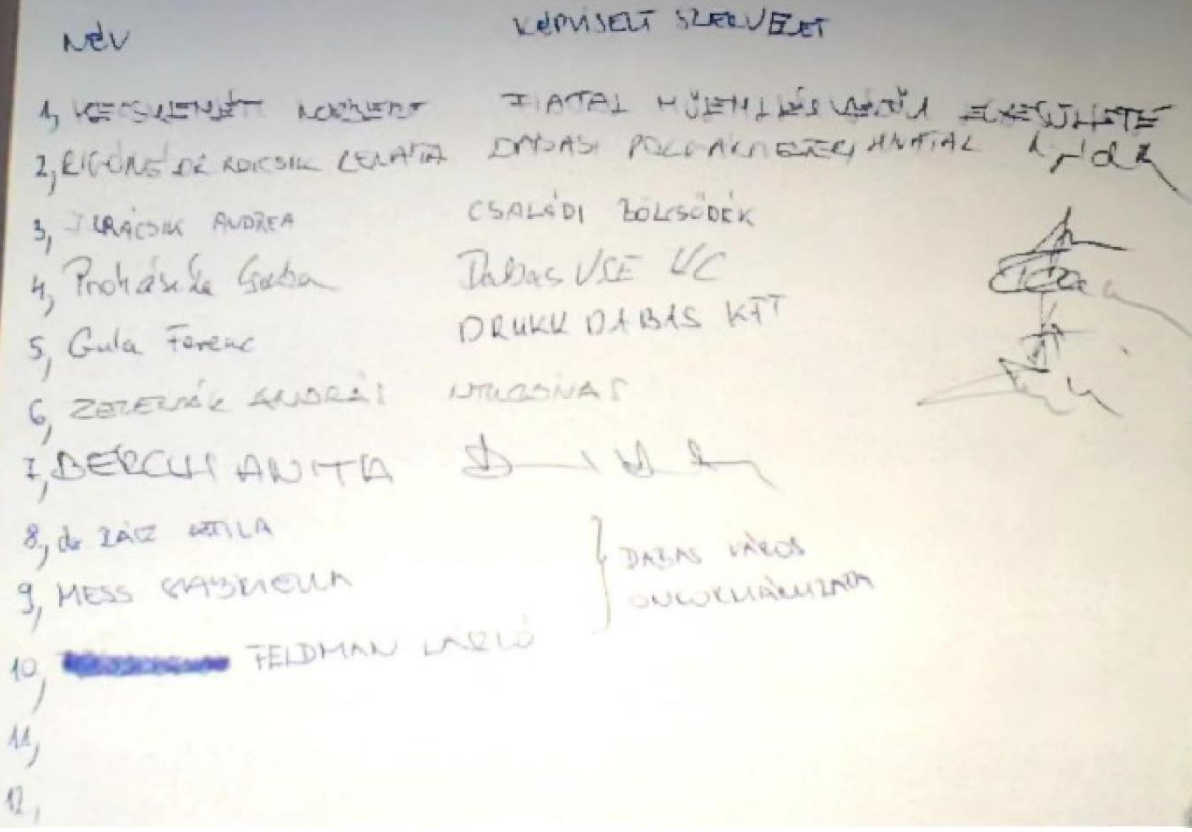 NÉV KÉPVISELT SZERVEZET
1, KECSKEMÉTI NORBERT FIATAL
2, RIGÓNÉ DR ROICSIK RENATA DABASI POLGÁRMESTERI HIVATAL
3, ANDREA CSALÁDI BÖLCSÖDÉK
4, Prohászka Csaba Dabas VSE KC
5, Gula Ferenc DRUKK DABAS KFT
6, ANDRÁS
7, BÉRCZI ANITA
8, dr RÁCZ ATTILA
9, MESS GABRIELLA
DABAS VÁROS
ÖNKORMÁNYZATA
10, FELDMAN LÁSZLÓ
11,
12,